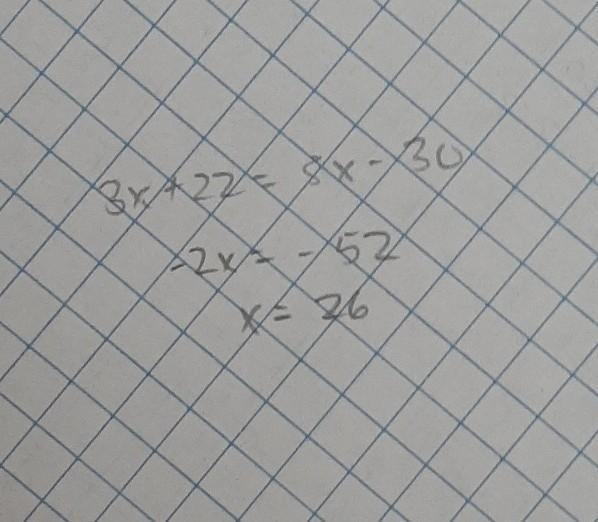 3x+22= 5x-30
-2x= -52
x= 26